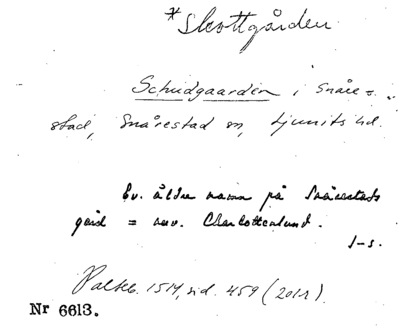 *Skottgården
Schudgaarden i Snåre-
stad, Snårestad sn, Ljunits hd.
Ev. äldre namn på Snårestads
gård = nuv. Charlottenlund.
I-s.
Palteb. 1514, sid. 459 (2011).
Nr 6613.